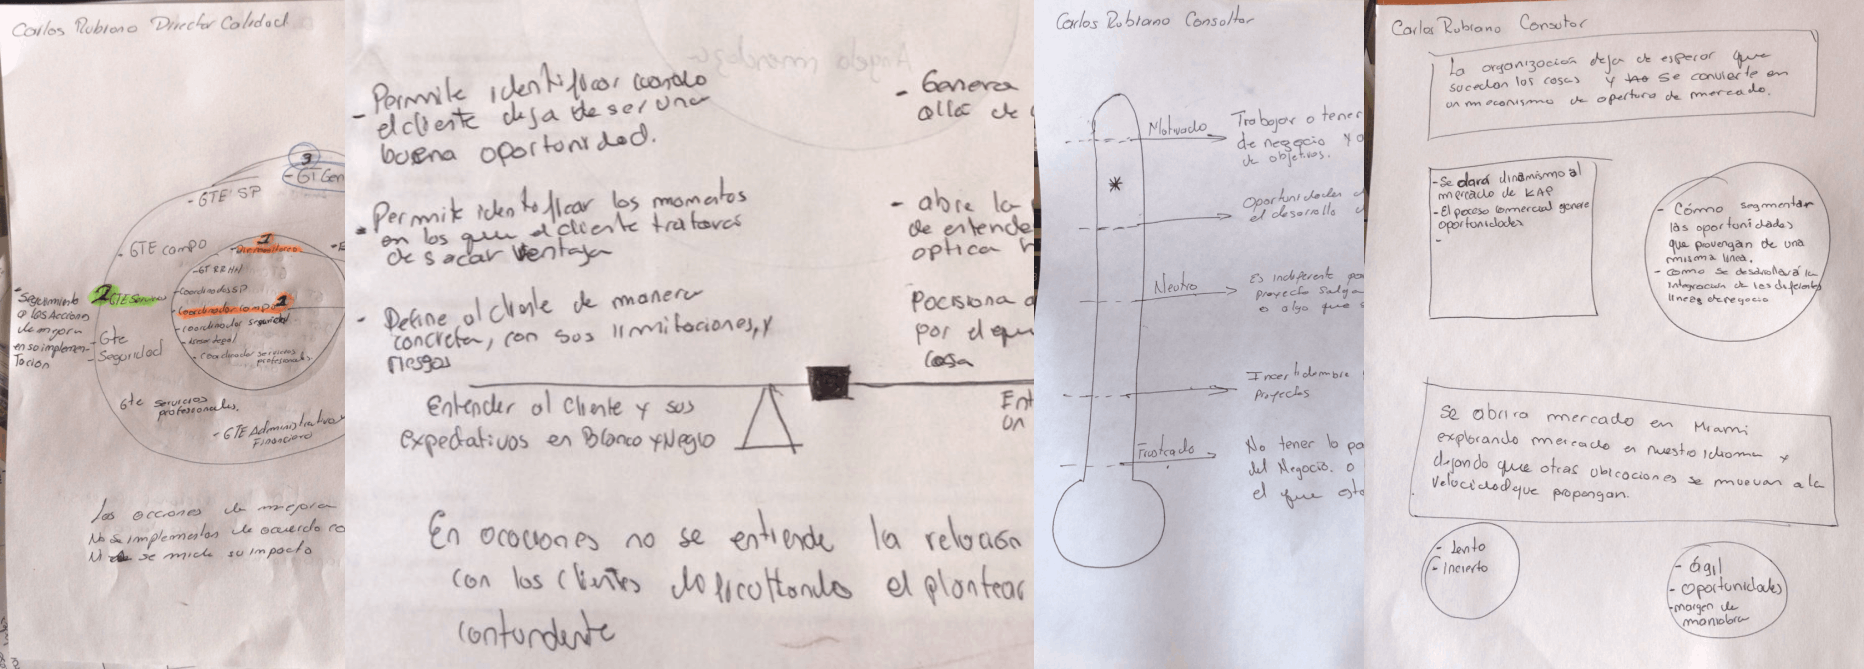 Carlos Rubiano Director Calidad
3
- GT Gen
- GTE SP
- GTE campo
1
- GT RRHH
- Coordinador SP
2 GTE Servicios
- Coordinador campo 1
- coordinador seguridad
- coordinador servicios
profesionales
- Seguimiento
a las Acciones
de mejora
en su implemen-
tacion
- Gte
Seguridad
Gte servicios
profesionales.
- GTE Administrativo
Financiero
Las acciones de mejora
No se implementan de acuerdo co
se mide su impacto
- Permite identificar cuando
el cliente deja de ser una
buena oportunidad.
- Permite identificar los momentos
en los que el cliente tratara
de sacar ventaja
- Define al cliente de manera
concreta, con sus limitaciones, y
riesgos
- Genera
alla de
- abre la
de entende
optica
Pocisiona a
por el que
cosa
Entender al cliente y sus
expectativas en Blanco y Negro
Ent
un
En ocaciones no se entiende la relación
con los clientes dificultando el plantear
contundente
Carlos Rubiano Consultor
*
Motivado
Trabajar o tener
de negocio y o
de objetivos.
Oportunidades
el desarrollo
Neutro
Es indiferente
proyecto salga
o algo que
Incertidumbre
Proyectos
Frustrado
No tener lo
del Negocio. o
el que esto
Carlos Rubiano Consutor
La organizacion deja de esperar que
sucedan las cosas y se convierte en
un mecanismo de apertura de mercado.
- Se dará dinamismo al
mercado de KAP
- El proceso comercial genere
oportunidades
-
- Cómo segmentar
las oportunidades
que provengan de una
misma linea.
- como se desarrollará la
integracion de las diferentes
lineas de negocio
Se abrira mercado en Miami
explorando mercado en nuestro idioma y
dejando que otras ubicaciones se muevan a la
velocidad que propongan.
- Lento
- Incierto
- ágil
- oportunidades
- margen de
maniobra